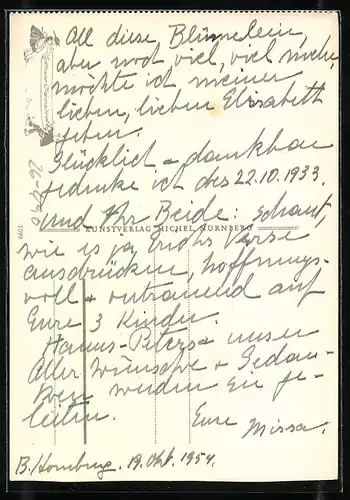 All diese Blümelein,
aber noch viel, viel mehr,
möchte ich meiner
lieben, lieben Elisabeth
geben.
Glücklich + dankbar
gedenke ich des 22.10.1933.
Und Ihr Beide: schaut,
KUNSTVERLAG MICHEL, NÜRNBERG
wie es ja Erichs Verse
ausdrücken, hoffnungs-
voll + vertrauend auf
Eure 3 Kinder.
Hanns-Peters + unser
Aller Wünsche + Gedan-
ken werden sie ge-
leiten.
Eure
Missa.
B. Homburg. 19. Okt. 1954.